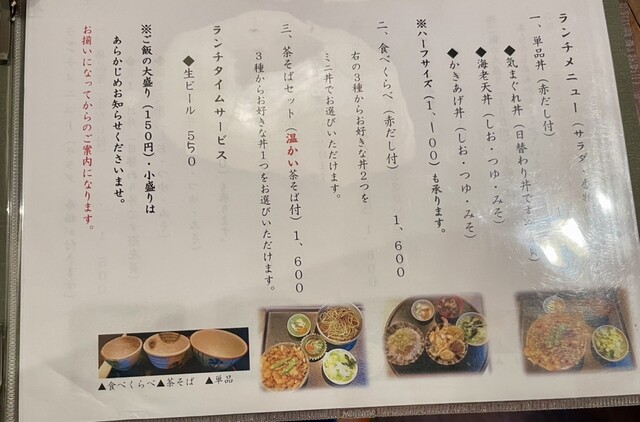 ランチメニュー（サラダ・
一、単品丼（赤だし付）
◆気まぐれ丼（日替わり丼です
◆海老天丼（しお・つゆ・みそ）
◆かきあげ丼（しお・つゆ・みそ）
※ハーフサイズ（１、１００）も承ります。
二、食べくらべ（赤だし付） １、６００
右の３種からお好きな丼２つを
ミニ丼でお選びいただけます。
三、茶そばセット（温かい茶そば付）１、６００
３種からお好きな丼１つをお選びいただけます。
ランチタイムサービス
◆生ビール ５５０
※ご飯の大盛り（１５０円）・小盛りは
あらかじめお知らせくださいませ。
お揃いになってからのご案内になります。
▲食べくらべ▲茶そば ▲単品